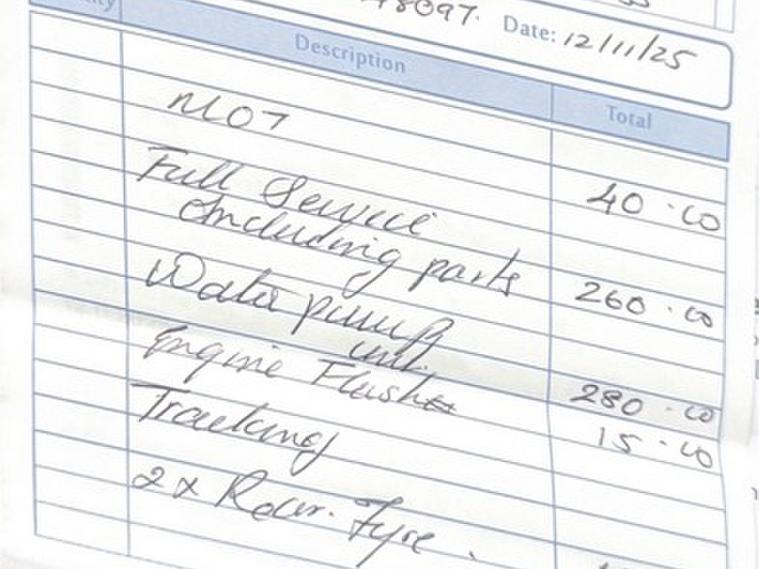 48097. Date: 12/11/25
Description Total
MOT 40.00
Full Service
Including parts 260.00
Water pump
unit. 280.00
Engine Flush 15.00
Tracking
2x Rear. Tyre.